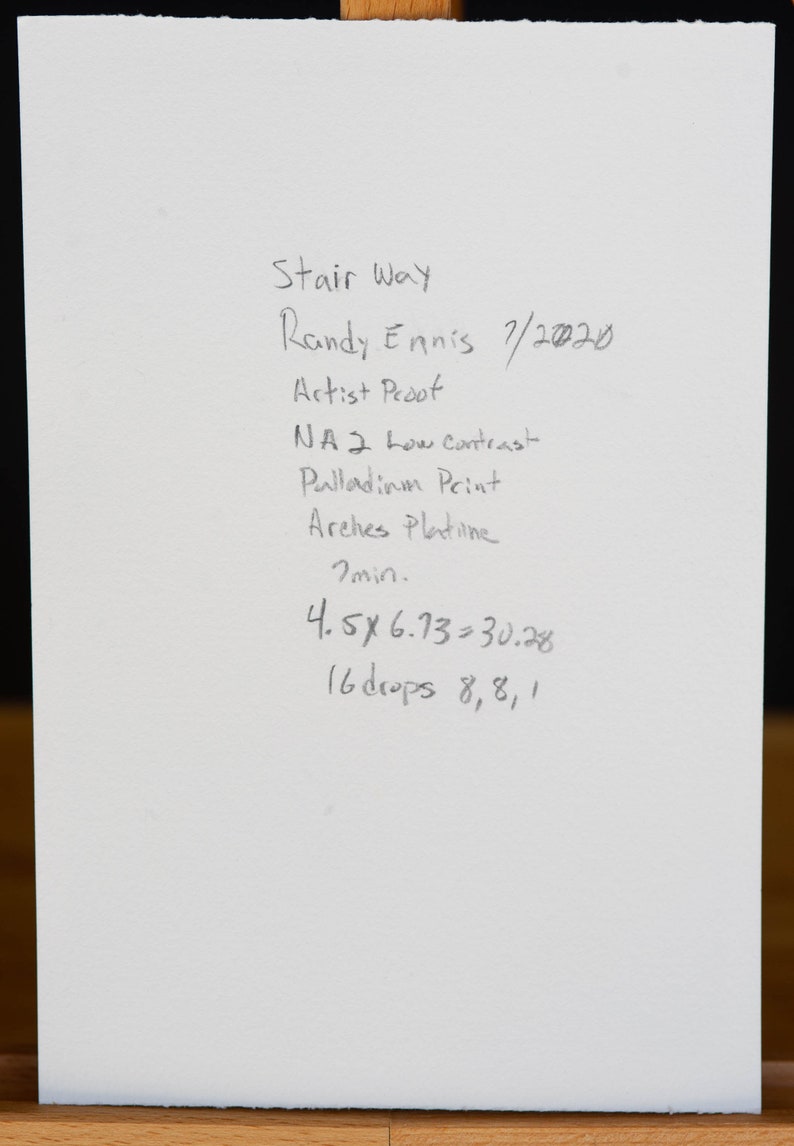 Stair Way
Randy Ennis 7/2020
Artist Proof
NA2 Low contrast
Palladium Print
Arches Platine
7min.
4.5x6.73=30.28
16drops 8,8,1